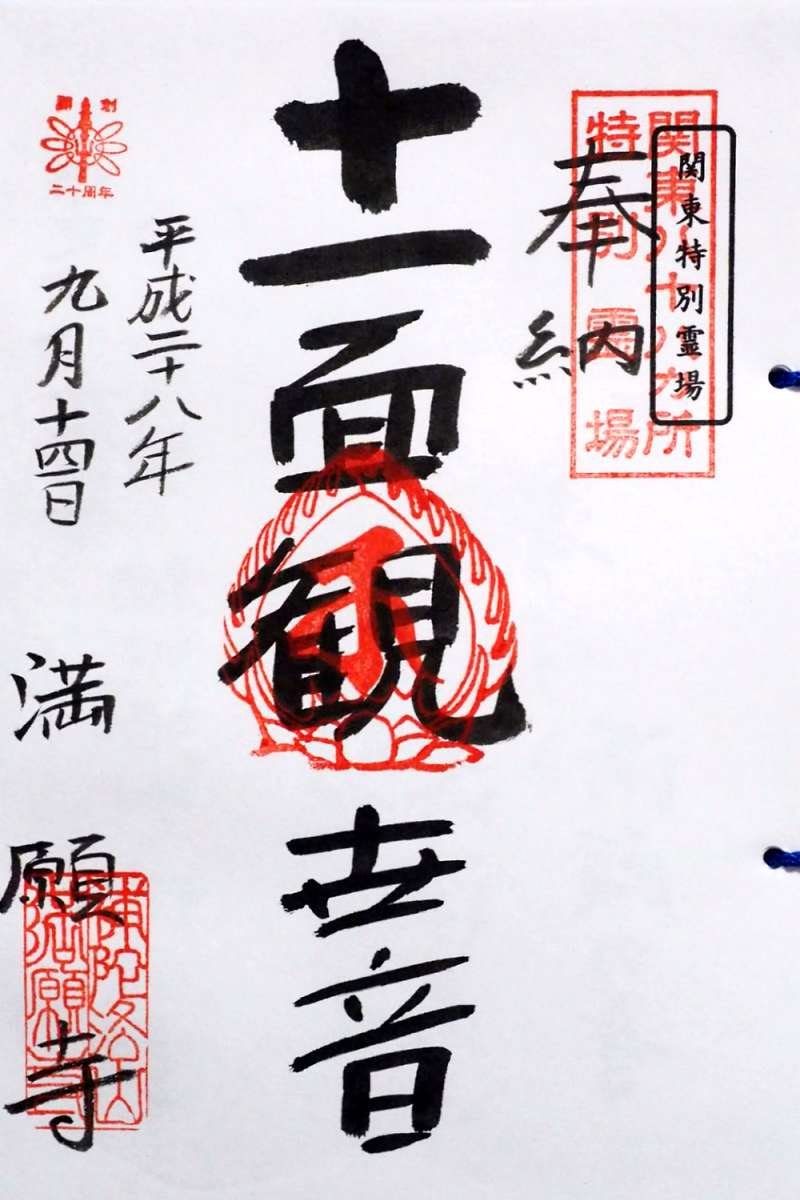 関東八十八カ所
特別霊場
関東特別霊場
奉納
十一面観世音
開創
二十周年
平成二十八年
九月十四日
満願寺